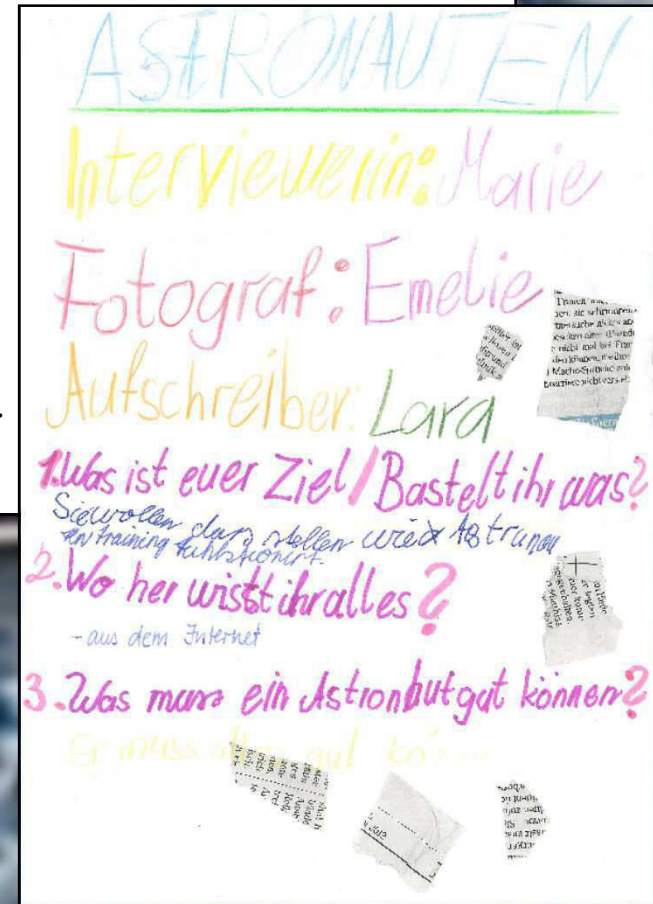 ASTRONAUTEN
Interviewerin: Marie
Fotograf: Emelie
Aufschreiber: Lara
1. Was ist euer Ziel/Bastelt ihr was?
Sie wollen dar stellen wie Astrunau
ten training funktioniert.
2. Wo her wisst ihr alles?
- aus dem Internet
3. Was muss ein Astronbut gut können?
Er muss alles gut können